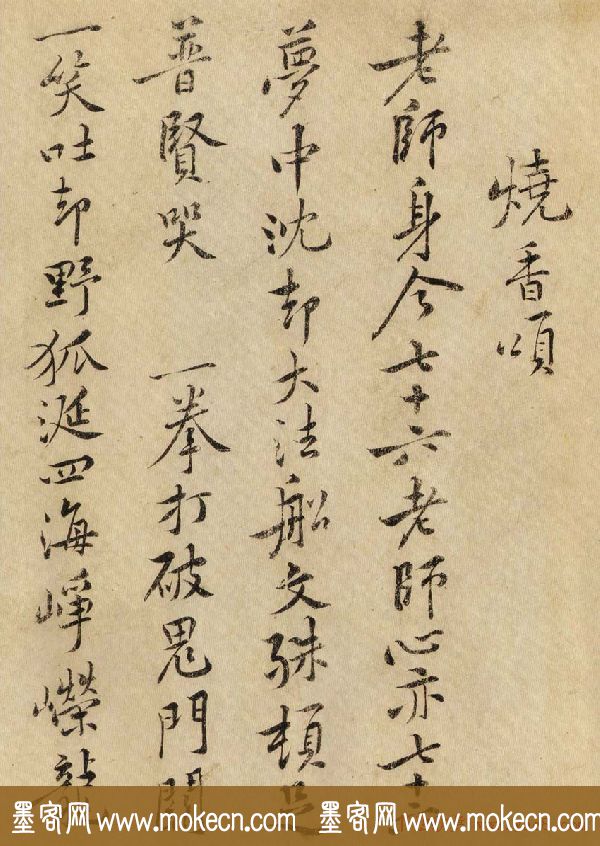 燒香頌
老師身今七十六老師心亦七十六
夢中沈却大法船文殊頓足
普賢哭 一拳打破鬼門關
一笑吐却野狐涎四海崢嶸龍
墨客网 www.mokecn.com 墨客网 www.mokecn.com